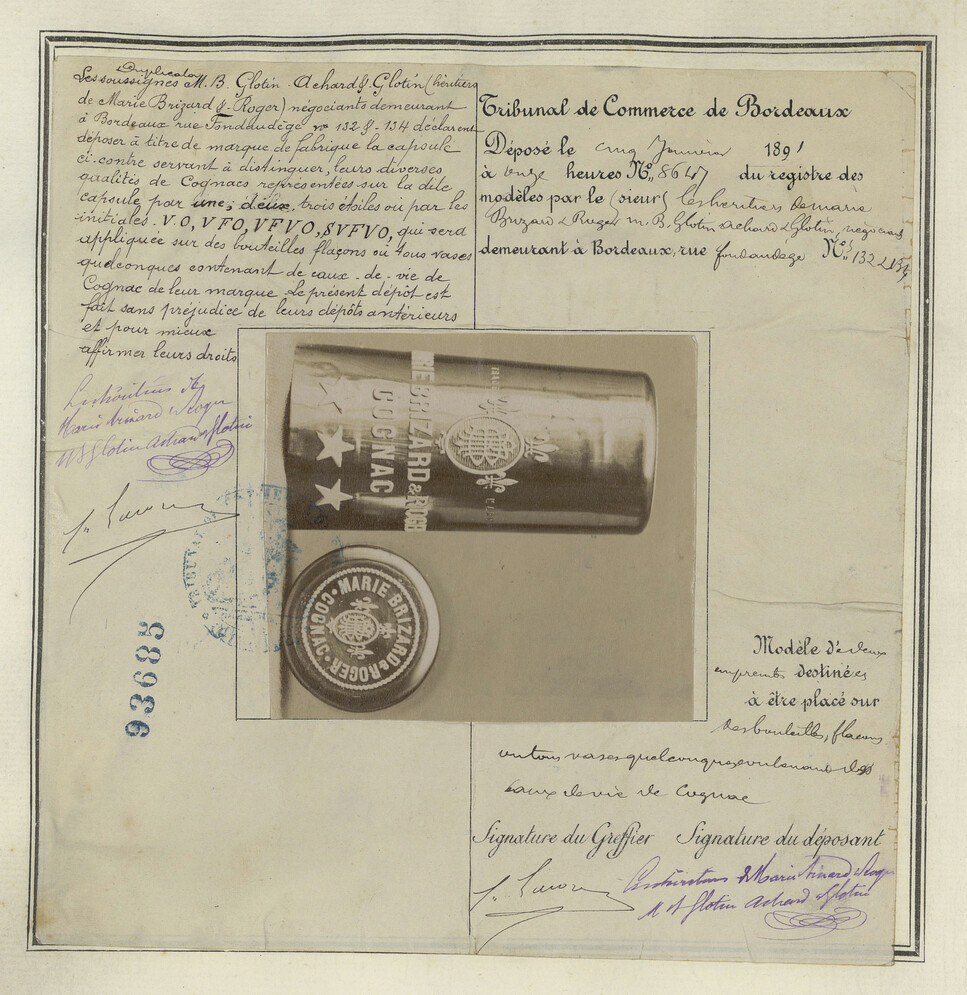 Duplicata
Les soussignés M. B. Glotin Achard & Glotin (héritiers
de Marie Brizard & Roger) négociants demeurant
à Bordeaux rue Fondaudège nº 132 & 134 déclarent
déposer à titre de marque de fabrique la capsule
ci-contre servant à distinguer, leurs diverses
qualités de Cognacs représentées sur la dite
capsule par une, deux, trois étoiles ou par les
initiales VO, VFO, VFVO, SVFVO, qui sera
appliquée sur des bouteilles flaçons ou tous vases
quelconques contenant de eaux-de-vie de
Cognac de leur marque Le présent dépôt est
fait sans préjudice de leurs dépôts antérieurs
et pour mieux
affirmer leurs droits
Les héritiers de
Marie Brizard & Roger
M B Glotin Achard & Glotin
93685
Tribunal de Commerce de Bordeaux
Déposé le cinq Janvier 1891
à onze heures Nº 8647 du registre des
modèles par le (sieur) Les heritiers de Marie
Brizard & Roger M. B. Glotin Achard & Glotin, negociants
demeurant à Bordeaux, rue fondaudege Nos 132 & 134
MARIE BRIZARD & ROGER
COGNAC
MARIE BRIZARD & ROGER · COGNAC ·
Modèle de deux
empreintes destinées
à être placé sur
des bouteilles, flacons
ou tous vases quelconques contenant des
eaux de vie de Cognac
Signature du Greffier Signature du déposant
Les héritiers de Marie Brizard & Roger
M B Glotin Achard & Glotin